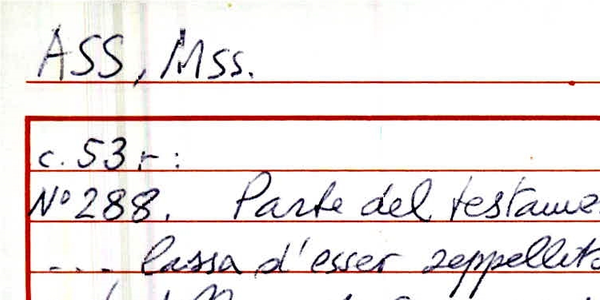 ASS, Mss.
c. 53 r:
N° 288. Parte del testame
... lassa d'esser seppellito